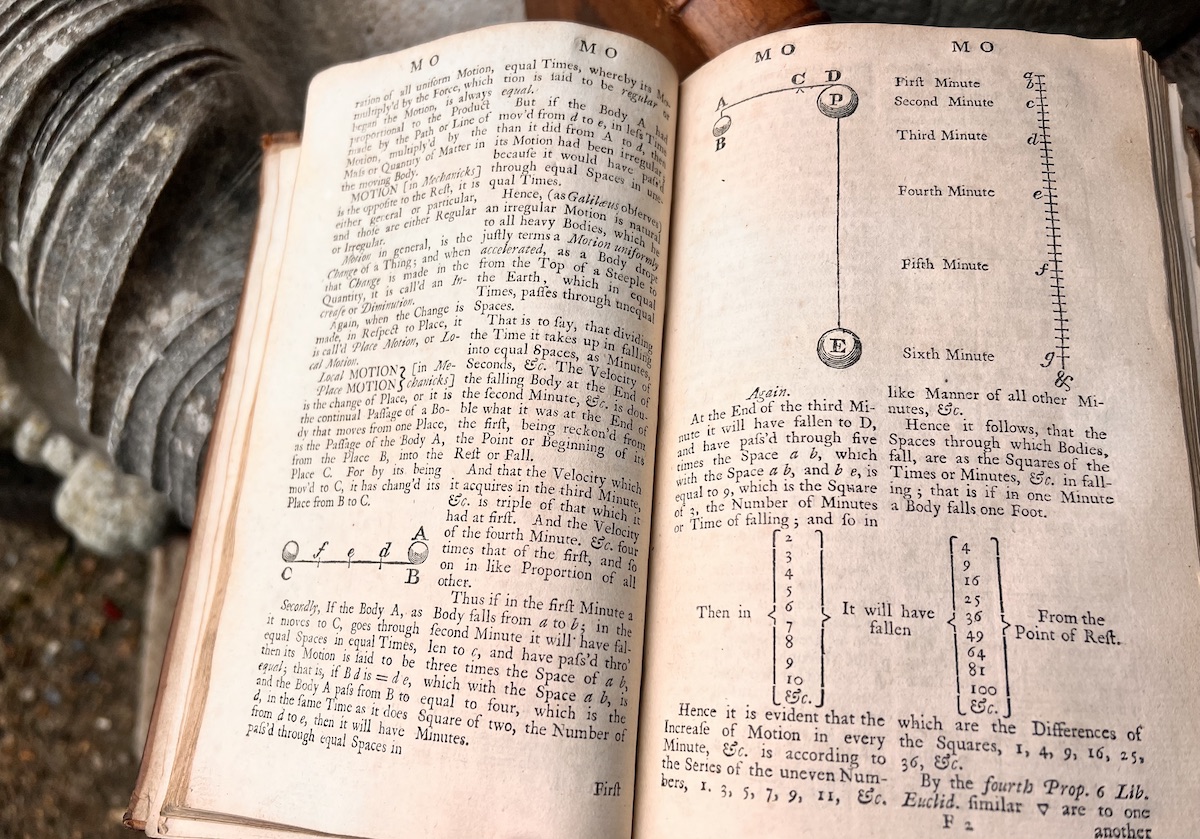 M O
ration of all uniform Motion,
multiply'd by the Force, which
began the Motion, is always
proportional to the Product
made by the Path or Line of
Motion, multiply'd by the
Mass or Quantity of Matter in
the moving Body.
MOTION [in Mechanicks]
is the opposite to the Rest, it is
either general or particular,
and those are either Regular
or Irregular.
Motion in general, is the
Change of a Thing; and when
that Change is made in the
Quantity, it is call'd an In-
crease or Diminution.
Again, when the Change is
made, in Respect to Place, it
is call'd Place Motion, or Lo-
cal Motion.
Local MOTION } [in Me-
Place MOTION } chanicks]
is the change of Place, or it is
the continual Passage of a Bo-
dy that moves from one Place,
as the Passage of the Body A,
from the Place B, into the
Place C. For by its being
mov'd to C, it has chang'd its
Place from B to C.
A
f e d
C B
Secondly, If the Body A, as
it moves to C, goes through
equal Spaces in equal Times,
then its Motion is said to be
equal; that is, if B d is = d e,
and the Body A pass from B to
d, in the same Time as it does
from d to e, then it will have
pass'd through equal Spaces in
M O
equal Times, whereby its Mo-
tion is said to be regular or
equal.
But if the Body A had
mov'd from d to e, in less Time
than it did from A to d, then
its Motion had been irregular;
because it would have pass'd
through equal Spaces in une-
qual Times.
Hence, (as Galilæus observes)
an irregular Motion is natural
to all heavy Bodies, which he
justly terms a Motion uniformly
accelerated, as a Body dropt
from the Top of a Steeple to
the Earth, which in equal
Times, passes through unequal
Spaces.
That is to say, that dividing
the Time it takes up in falling
into equal Spaces, as Minutes,
Seconds, &c. The Velocity of
the falling Body at the End of
the second Minute, &c. is dou-
ble what it was at the End of
the first, being reckon'd from
the Point or Beginning of its
Rest or Fall.
And that the Velocity which
it acquires in the third Minute,
&c. is triple of that which it
had at first. And the Velocity
of the fourth Minute. &c. four
times that of the first, and so
on in like Proportion of all
other.
Thus if in the first Minute a
Body falls from a to b; in the
second Minute it will have fal-
len to c, and have pass'd thro'
three times the Space of a b,
which with the Space a b, is
equal to four, which is the
Square of two, the Number of
Minutes.
First
M O
M O
C D
A P
B
E
First Minute a
b
Second Minute c
Third Minute d
Fourth Minute e
Fifth Minute f
Sixth Minute g
&
Again.
At the End of the third Mi-
nute it will have fallen to D,
and have pass'd through five
times the Space a b, which
with the Space a b, and b e, is
equal to 9, which is the Square
of 3, the Number of Minutes
or Time of falling; and so in
like Manner of all other Mi-
nutes, &c.
Hence it follows, that the
Spaces through which Bodies,
fall, are as the Squares of the
Times or Minutes, &c. in fall-
ing; that is if in one Minute
a Body falls one Foot.
Then in
2
3
4
5
6
7
8
9
10
&c.
It will have
fallen
4
9
16
25
36
49
64
81
100
&c.
From the
Point of Rest.
Hence it is evident that the
Increase of Motion in every
Minute, &c. is according to
the Series of the uneven Num-
bers, 1. 3, 5, 7, 9, 11, &c.
which are the Differences of
the Squares, 1, 4, 9, 16, 25,
36, &c.
By the fourth Prop. 6 Lib.
Euclid. similar ▽ are to one
F 2
another